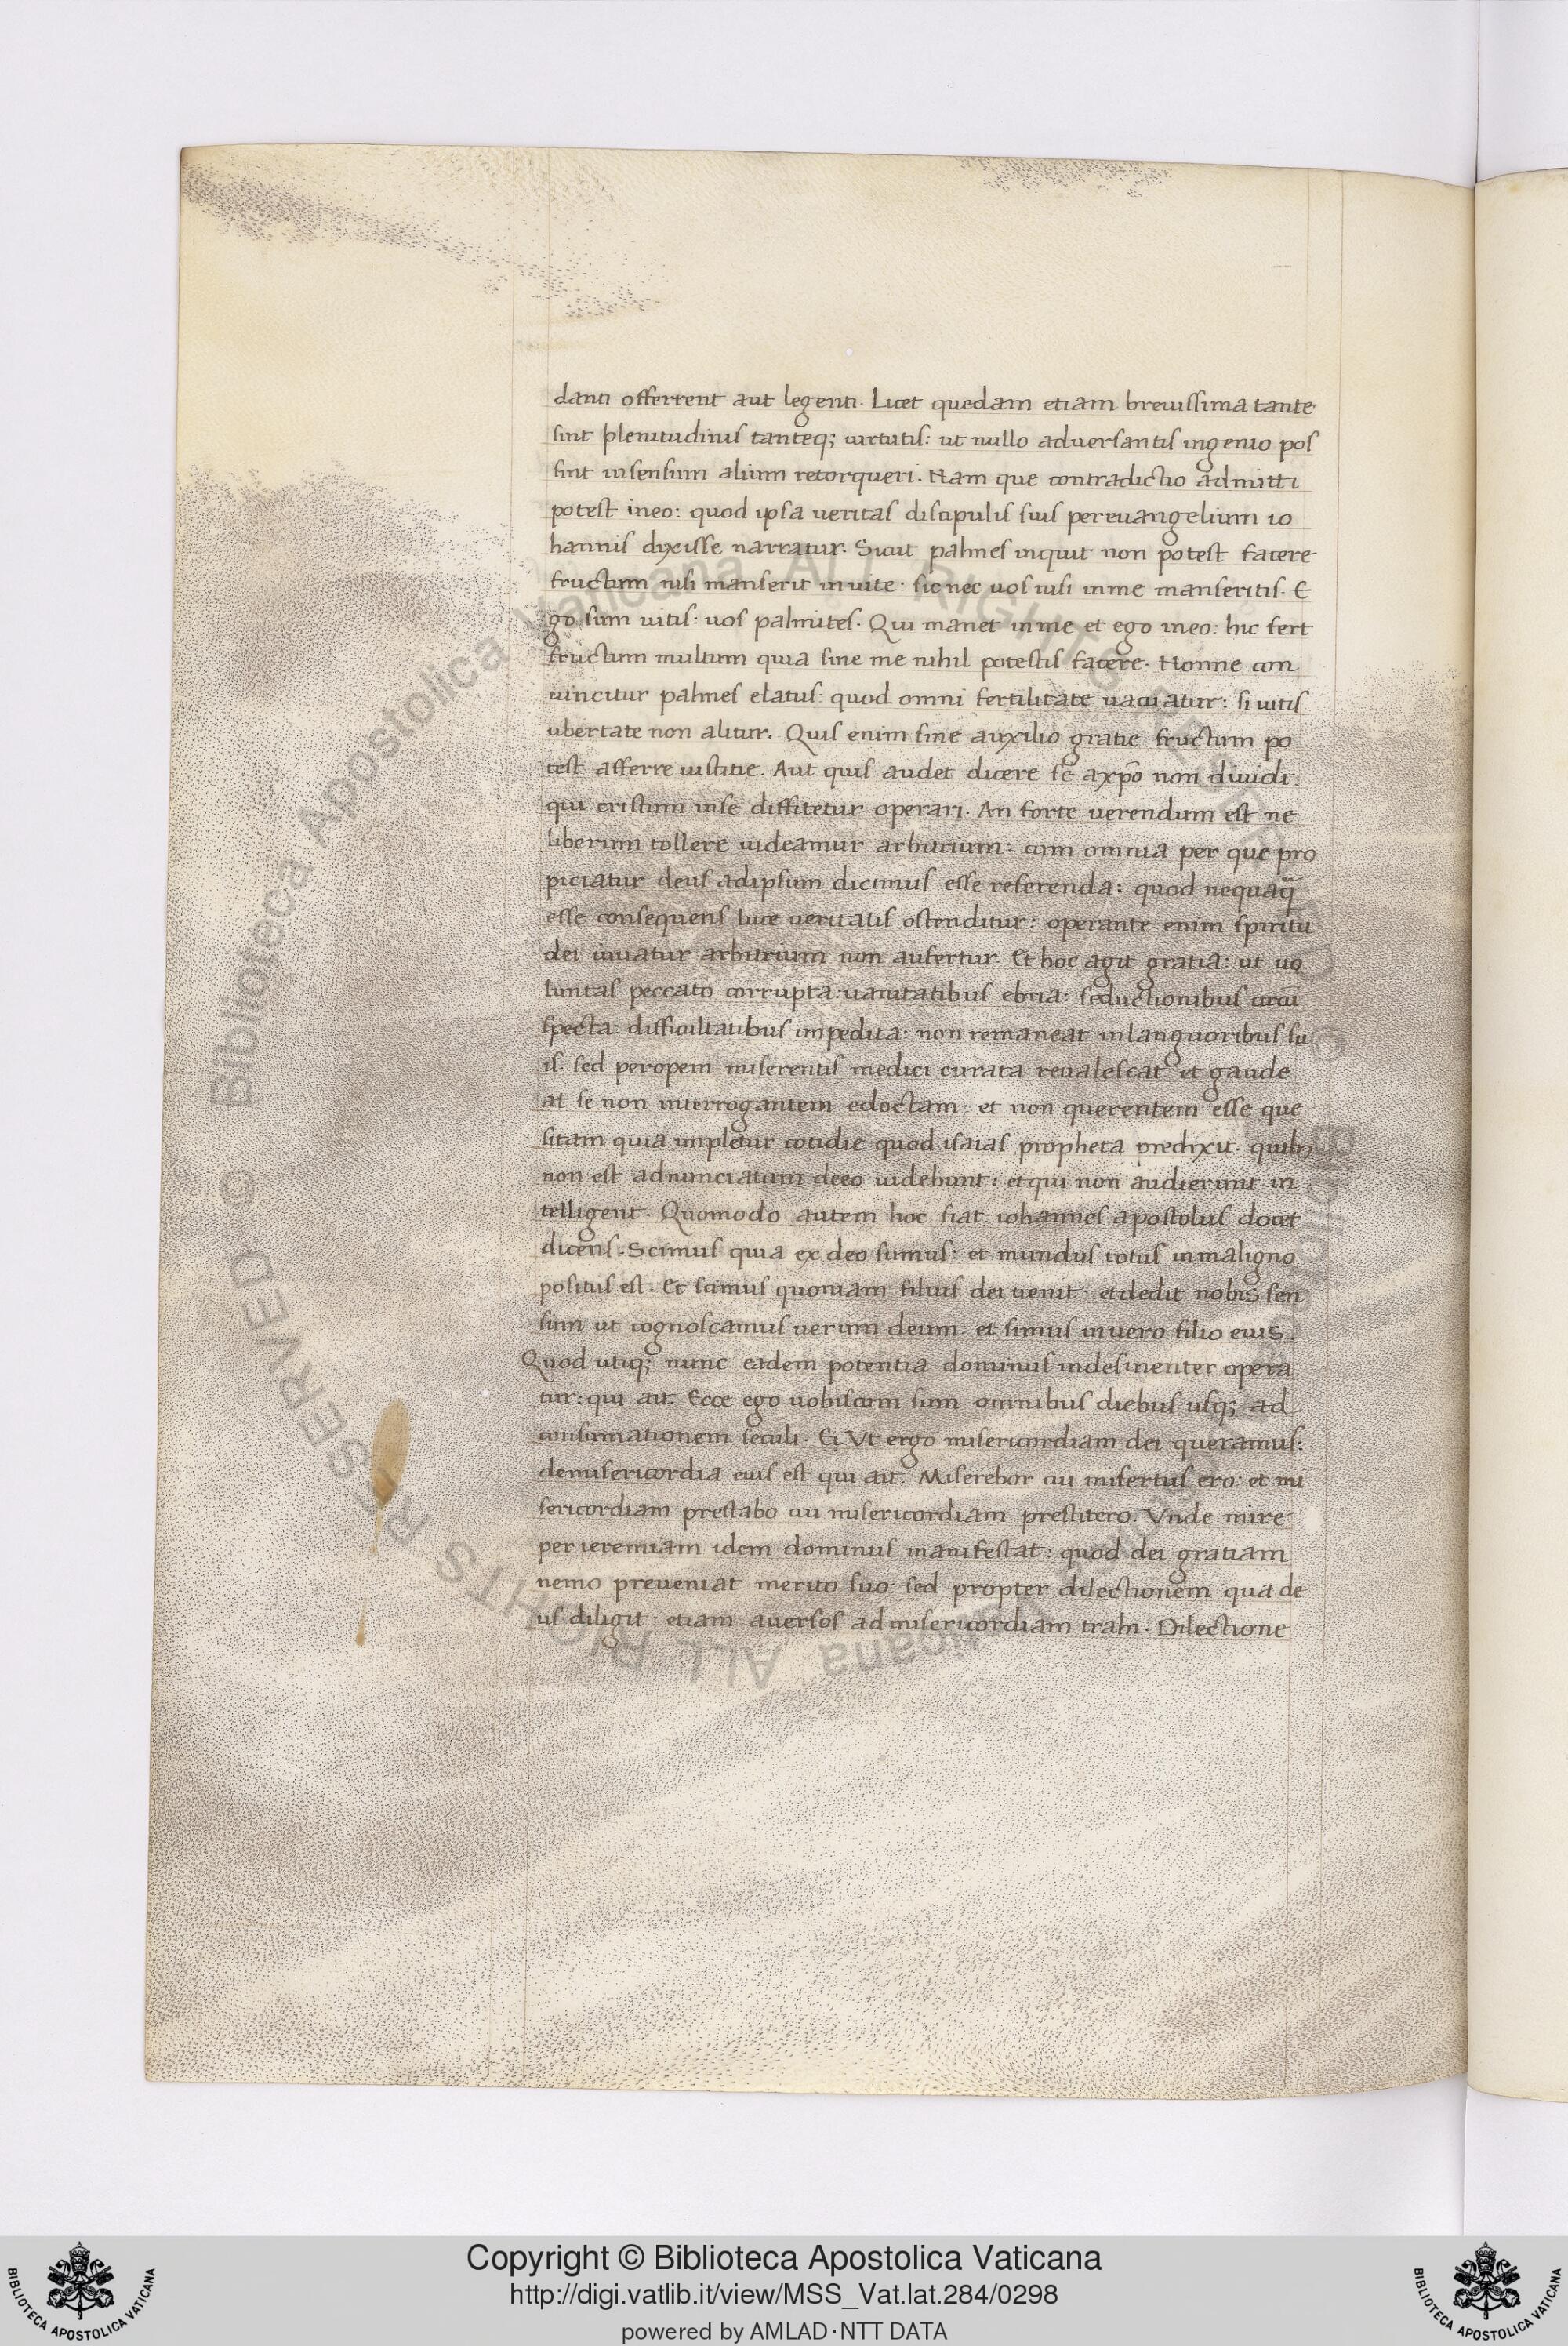 danti offerrent aut legenti. Licet quedam etiam breuissima tante
sint plenitudinis tanteq; uirtutis: ut nullo aduersantis ingenio pos
sint insensum alium retorqueri. Nam que contradictio admitti
potest ineo: quod ipsa ueritas discipulis suis pereuangelium io
hannis dixisse narratur. Sicut palmes inquit non potest facere
fructum nisi manserit inuite: sic nec uos nisi inme manseritis. E
go sum uitis: uos palmites. Qui manet inme et ego ineo: hic fert
fructum multum quia sine me nihil potestis facere. Nonne con
uincitur palmes elatus: quod omni fertilitate uacuatur: si uitis
ubertate non alitur. Quis enim sine auxilio gratie fructum po
test afferre iustitie. Aut quis audet dicere se axp̄o non diuidi:
qui cristum inse diffitetur operari. An forte uerendum est ne
liberum tollere uideamur arbitrium: cum omnia per que pro
piciatur deus adipsum dicimus esse referenda: quod nequaq̄
esse consequens luce ueritatis ostenditur: operante enim spiritu
dei iuuatur arbitrium non aufertur. Et hoc agit gratia: ut uo
luntas peccato corrupta: uanitatibus ebria: seductionibus circū
specta: difficultatibus impedita: non remaneat inlanguoribus su
is: sed peropem miserentis medici curata reualescat et gaude
at se non interrogantem edoctam: et non querentem esse que
sitam quia impletur cotidie quod isaias propheta predixit. quib;
non est adnunciatum deeo uidebunt: etqui non audierunt in
telligent. Quomodo autem hoc fiat: iohannes apostolus docet
dicens. Scimus quia ex deo sumus: et mundus totus inmaligno
positus est. Et scimus quoniam filius dei uenit: etdedit nobis sen
sum ut cognoscamus uerum deum: et simus inuero filio eius.
Quod utiq; nunc eadem potentia dominus indesinenter opera
tur: qui ait. Ecce ego uobiscum sum omnibus diebus usq; ad
consumationem seculi. Et Vt ergo misericordiam dei queramus:
demisericordia eius est qui ait. Miserebor cui misertus ero: et mi
sericordiam prestabo cui misericordiam prestitero. Vnde mire
per ieremiam idem dominus manifestat: quod dei gratiam
nemo preueniat merito suo: sed propter dilectionem qua de
us diligit: etiam auersos admisericordiam trahi. Dilectione
Biblioteca Apostolica Vaticana ALL RIGHTS RESERVED
© Biblioteca Apostolica Vaticana ALL RIGHTS RESERVED ©
Copyright © Biblioteca Apostolica Vaticana
http://digi.vatlib.it/view/MSS_Vat.lat.284/0298
powered by AMLAD·NTT DATA
BIBLIOTECA APOSTOLICA VATICANA
BIBLIOTECA APOSTOLICA VATICANA